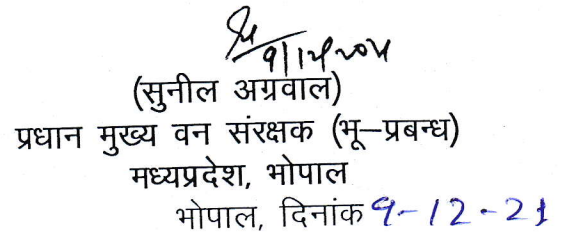 9/12/2021
(सुनील अग्रवाल)
प्रधान मुख्य वन संरक्षक (भू-प्रबन्ध)
मध्यप्रदेश, भोपाल
भोपाल, दिनांक 9-12-21